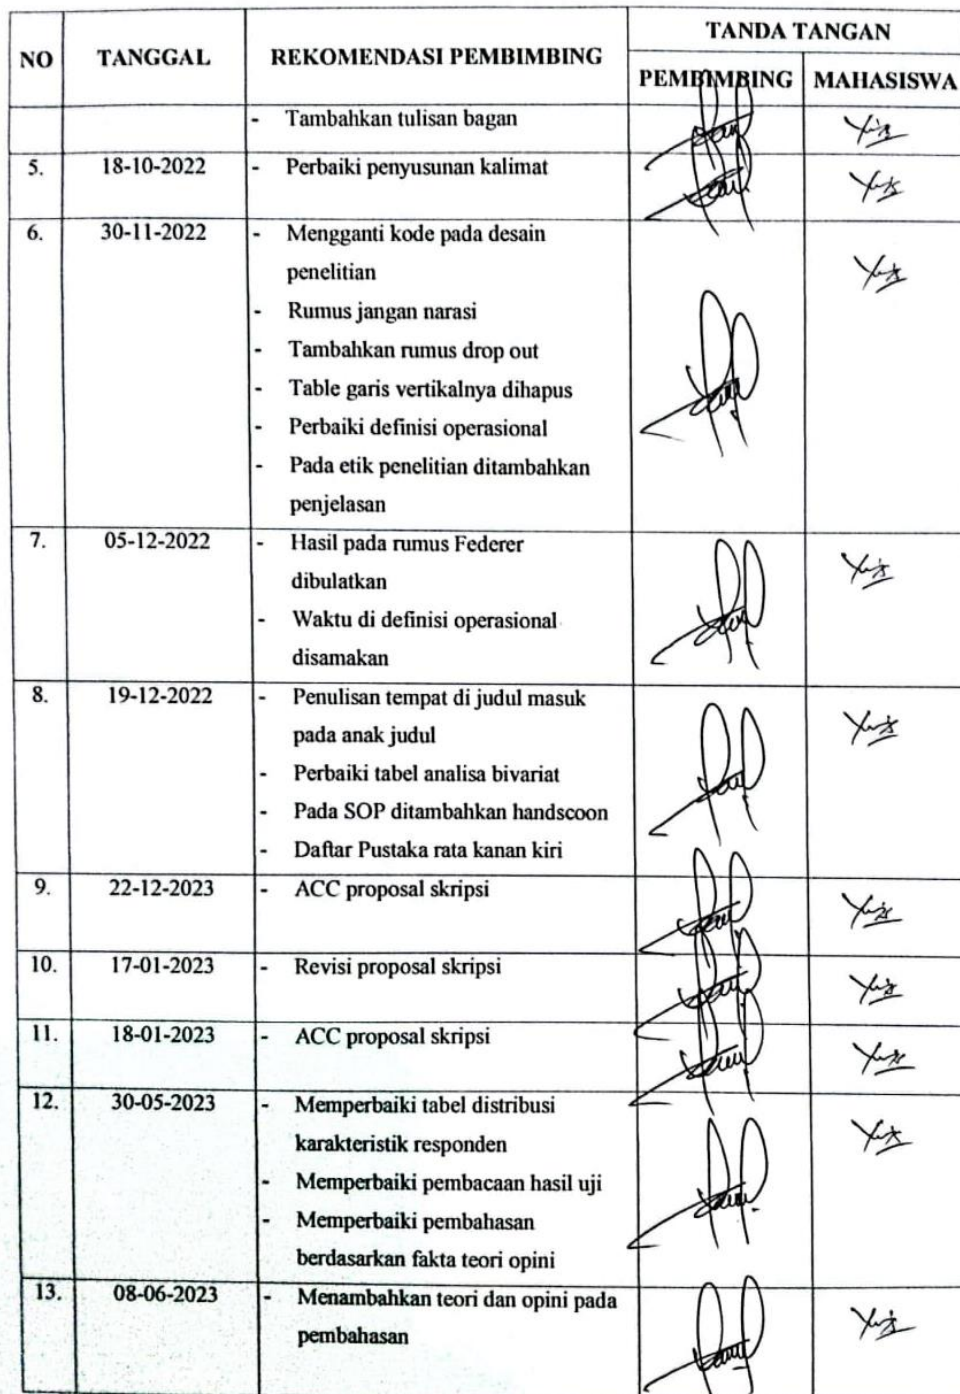 NO TANGGAL REKOMENDASI PEMBIMBING TANDA TANGAN
PEMBIMBING MAHASISWA
- Tambahkan tulisan bagan
5. 18-10-2022 - Perbaiki penyusunan kalimat
6. 30-11-2022 - Mengganti kode pada desain
penelitian
- Rumus jangan narasi
- Tambahkan rumus drop out
- Table garis vertikalnya dihapus
- Perbaiki definisi operasional
- Pada etik penelitian ditambahkan
penjelasan
7. 05-12-2022 - Hasil pada rumus Federer
dibulatkan
- Waktu di definisi operasional
disamakan
8. 19-12-2022 - Penulisan tempat di judul masuk
pada anak judul
- Perbaiki tabel analisa bivariat
- Pada SOP ditambahkan handscoon
- Daftar Pustaka rata kanan kiri
9. 22-12-2023 - ACC proposal skripsi
10. 17-01-2023 - Revisi proposal skripsi
11. 18-01-2023 - ACC proposal skripsi
12. 30-05-2023 - Memperbaiki tabel distribusi
karakteristik responden
- Memperbaiki pembacaan hasil uji
- Memperbaiki pembahasan
berdasarkan fakta teori opini
13. 08-06-2023 - Menambahkan teori dan opini pada
pembahasan